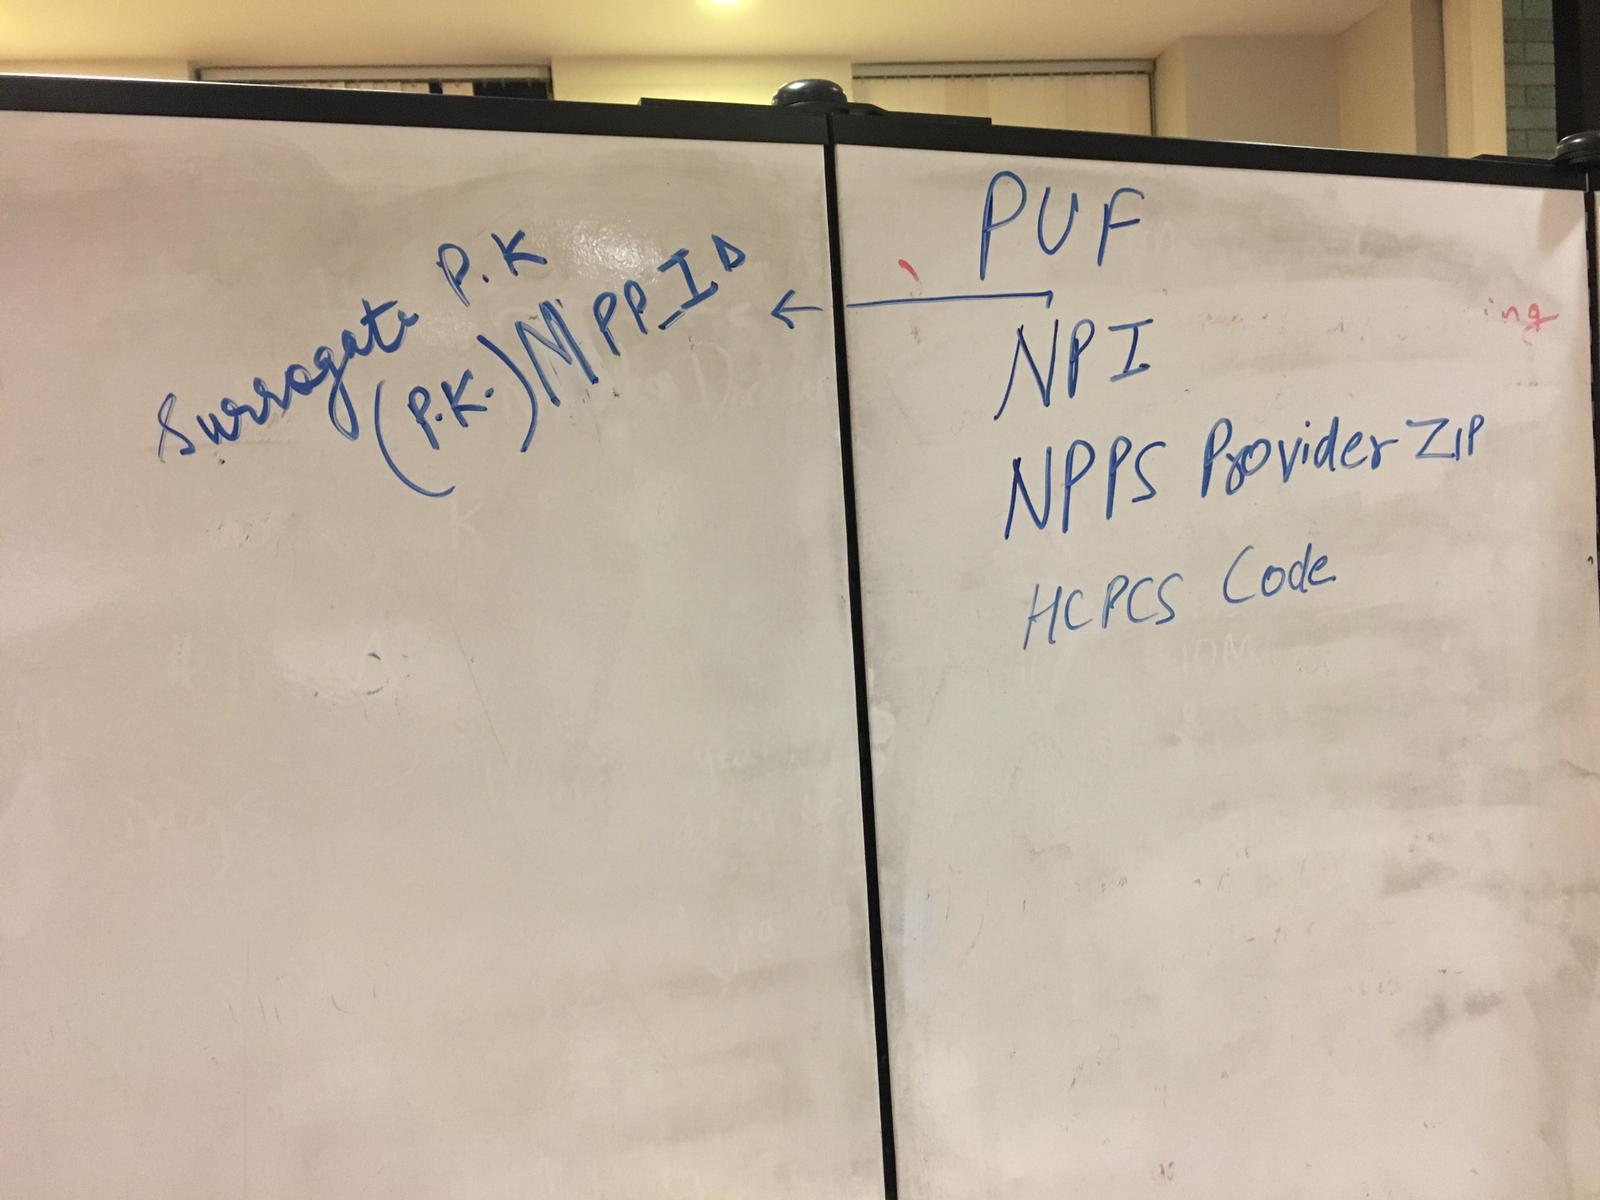 Surrogate P.K
(P.K.) MPP_ID
←
PUF
NPI
NPPS Provider ZIP
HCPCS Code
ing